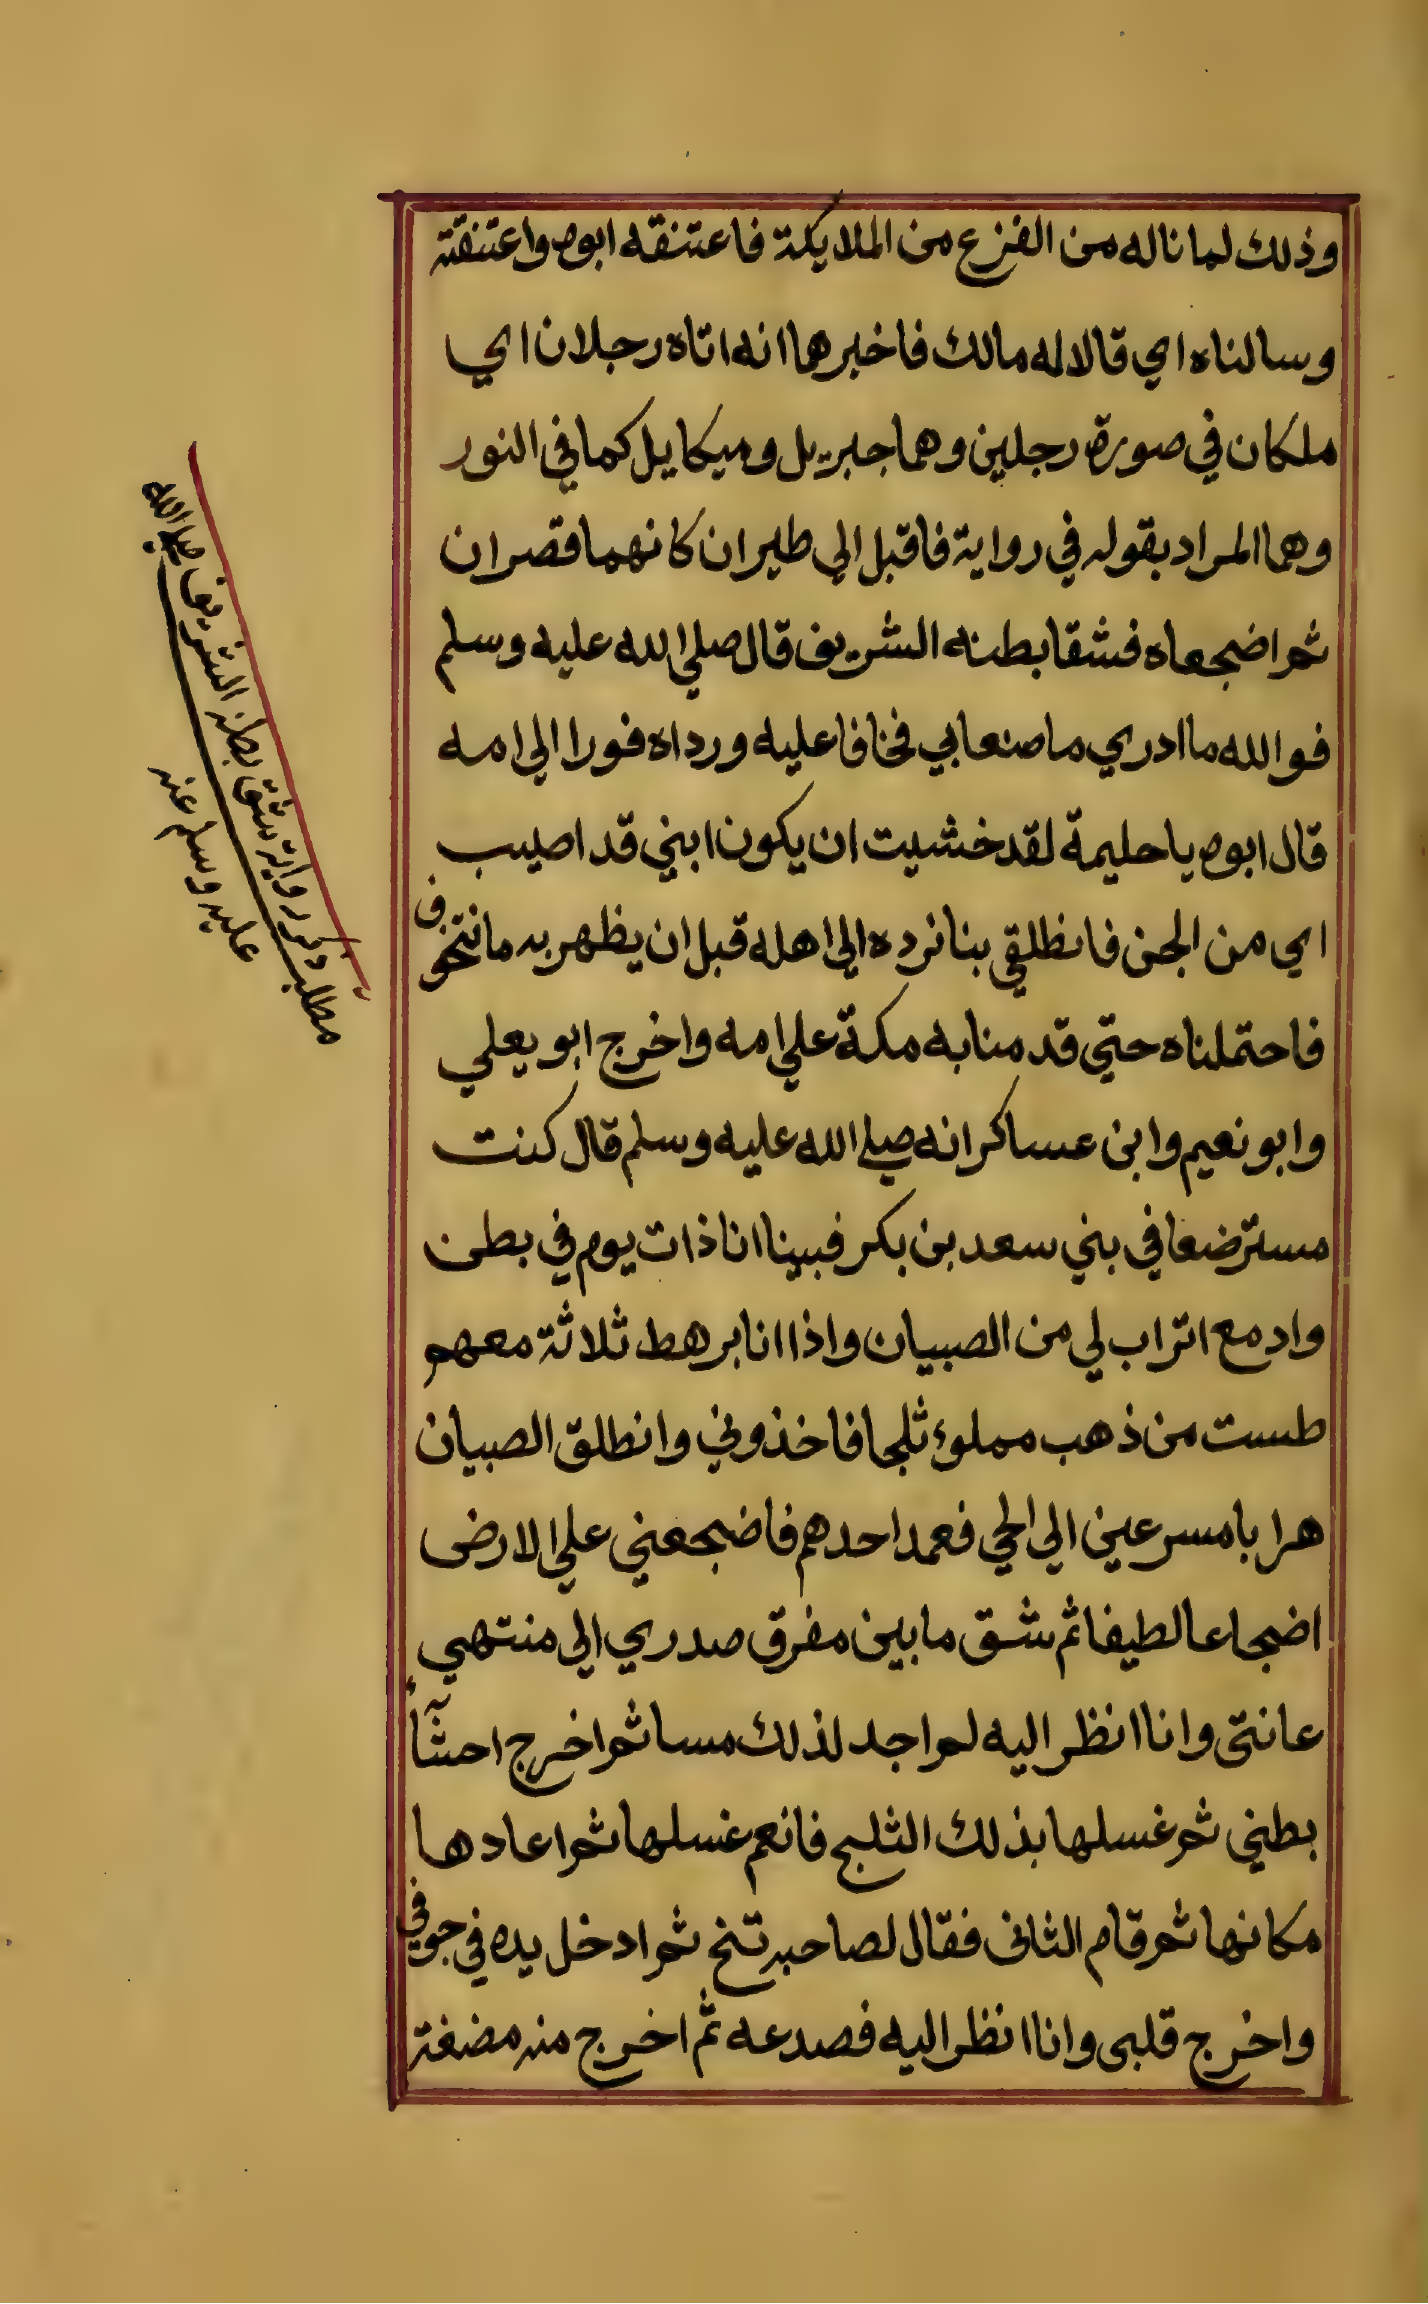 وذلك لما ناله من الفزع من الملايكة فاعتنقه ابوه واعتنقته
وسالناه اي قالا له مالك فاخبرهما انه اتاه رجلان اي
ملكان في صورة رجلين وهما جبريل وميكايل كما في النور
وهما المراد بقوله في رواية فاقبل الي طيران كانهما قصران
ثم اضجعاه فشقا بطنه الشريف قال صلي الله عليه وسلم
فوالله ما ادري ما صنعا بي فخافا عليه ورداه فورا الي امه
قال ابوه يا حليمة لقد خشيت ان يكون ابني قد اصيب
اي من الجن فانطلقي بنا نرده الي اهله قبل ان يظهر به ما نتخوف
فاحتملناه حتي قدمنا به مكة علي امه واخرج ابو يعلي
وابو نعيم وابن عساكر انه صلي الله عليه وسلم قال كنت
مسترضعا في بني سعد بن بكر فبينا انا ذات يوم في بطن
واد مع اتراب لي من الصبيان واذا انا برهط ثلاثة معهم
طست من ذهب مملوء ثلجا فاخذوني وانطلق الصبيان
هرابا مسرعين الي الحي فعمد احدهم فاضجعني علي الارض
اضجاعا لطيفا ثم شق ما بين مفرق صدري الي منتهي
عانتي وانا انظر اليه لم اجد لذلك مسا ثم اخرج احشآء
بطني ثم غسلها بذلك الثلج فانعم غسلها ثم اعادها
مكانها ثم قام الثاني فقال لصاحبه تنح ثم ادخل يده في جوفي
واخرج قلبي وانا انظر اليه فصدعه ثم اخرج منه مضغة
مطلب ذكر رواية شق بطنه الشريف صلي الله
عليه وسلم عند